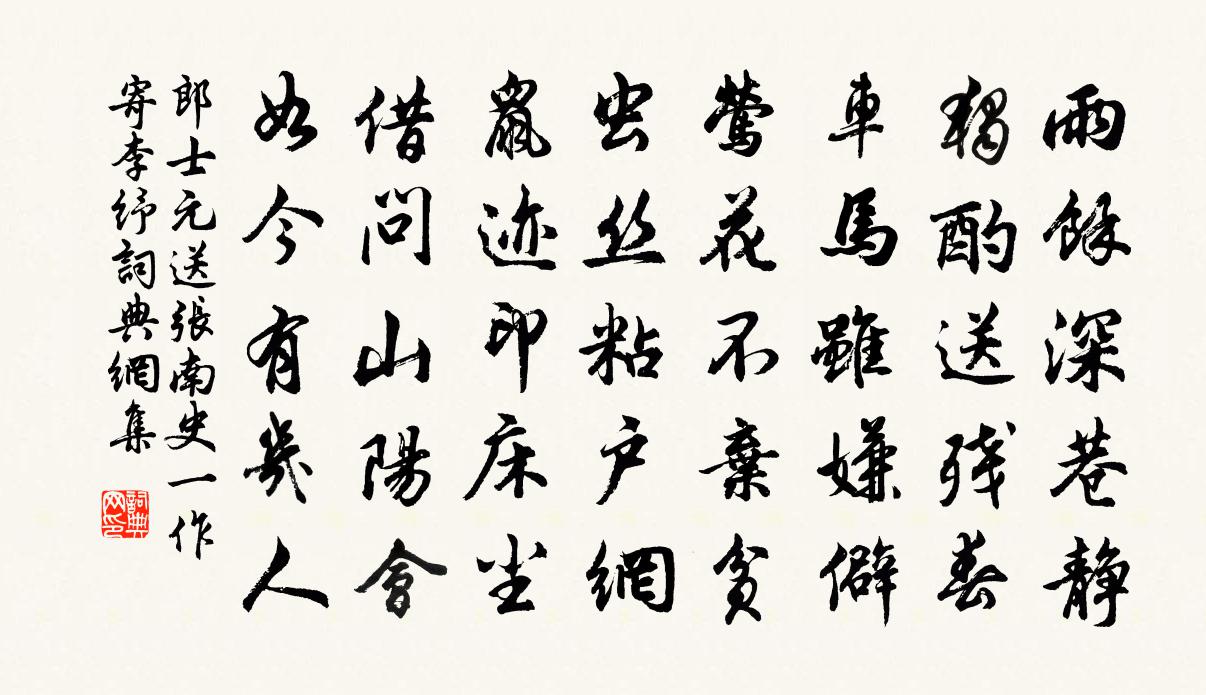 雨餘深巷静
獨酌送残春
車馬雖嫌僻
鶯花不棄貧
虫丝粘户網
鼠迹印床尘
借問山陽會
如今有幾人
郎士元送張南史一作
寄李纾詞典網集
詞典网印